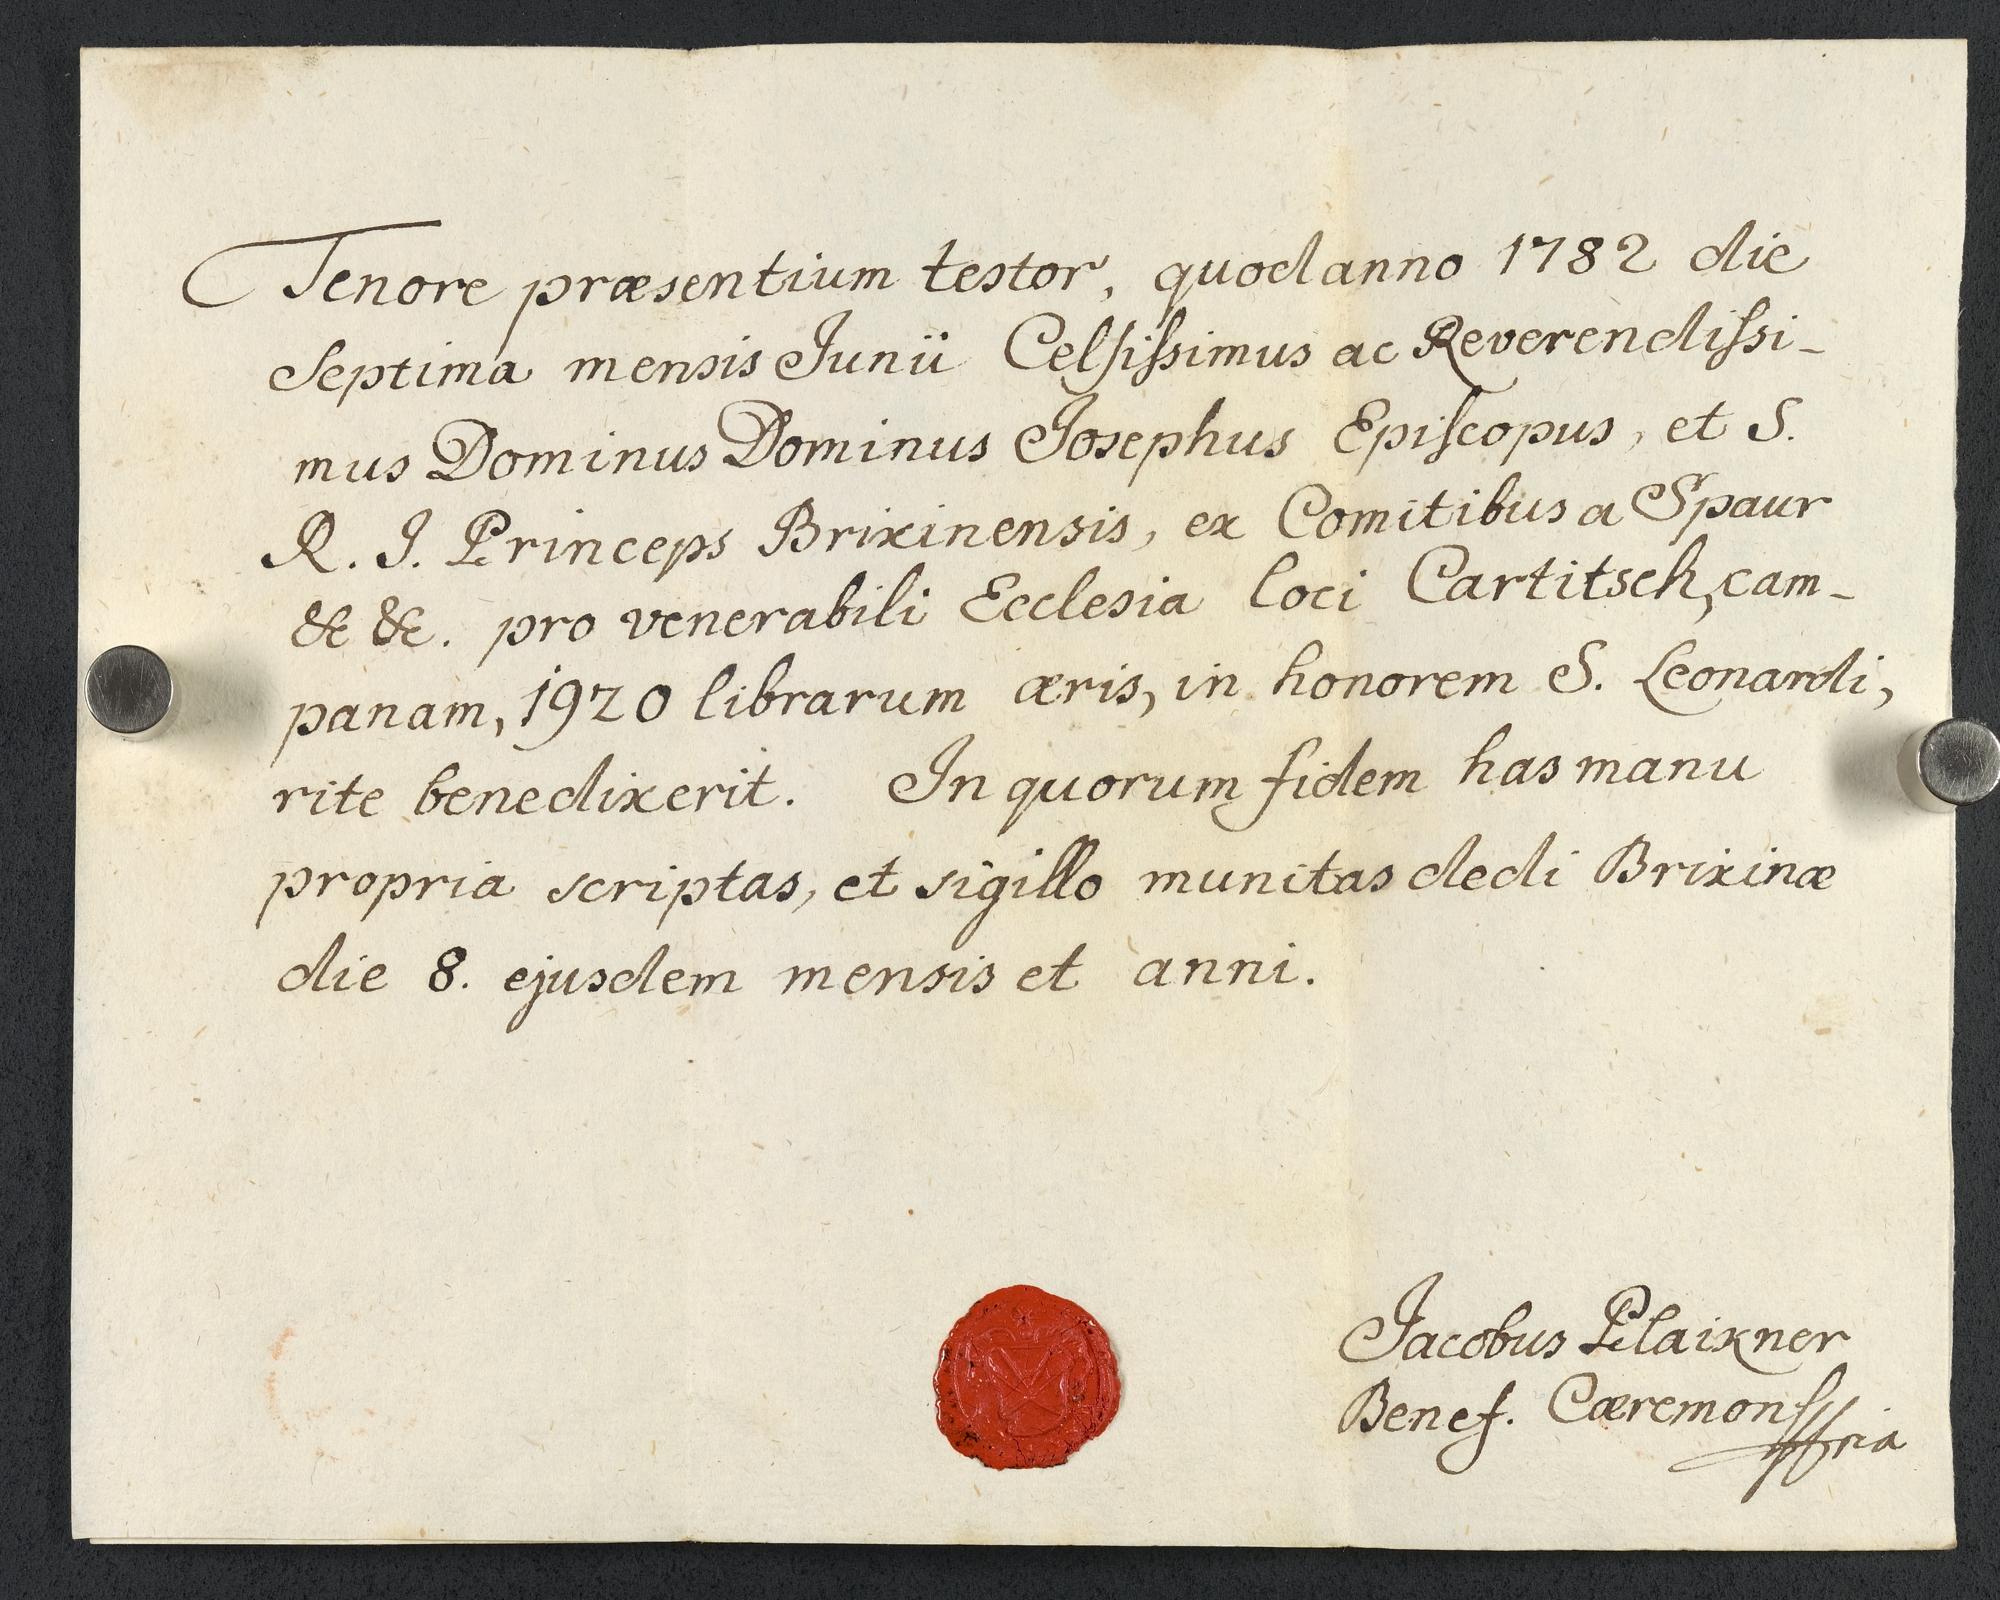 Tenore præsentium testor, quod anno 1782 die
Septima mensis Junii Celsissimus ac Reverendissi-
mus Dominus Dominus Josephus Episcopus, et S.
R. I. Princeps Brixinensis, ex Comitibus a Spaur
&c &c. pro venerabili Ecclesia loci Cartitsch, cam-
panam, 1920 librarum æris, in honorem S. Leonardi,
rite benedixerit. In quorum fidem has manu
propria scriptas, et sigillo munitas dedi Brixinæ
die 8. ejusdem mensis et anni.
Jacobus Plaikner
Benef. Cæremon